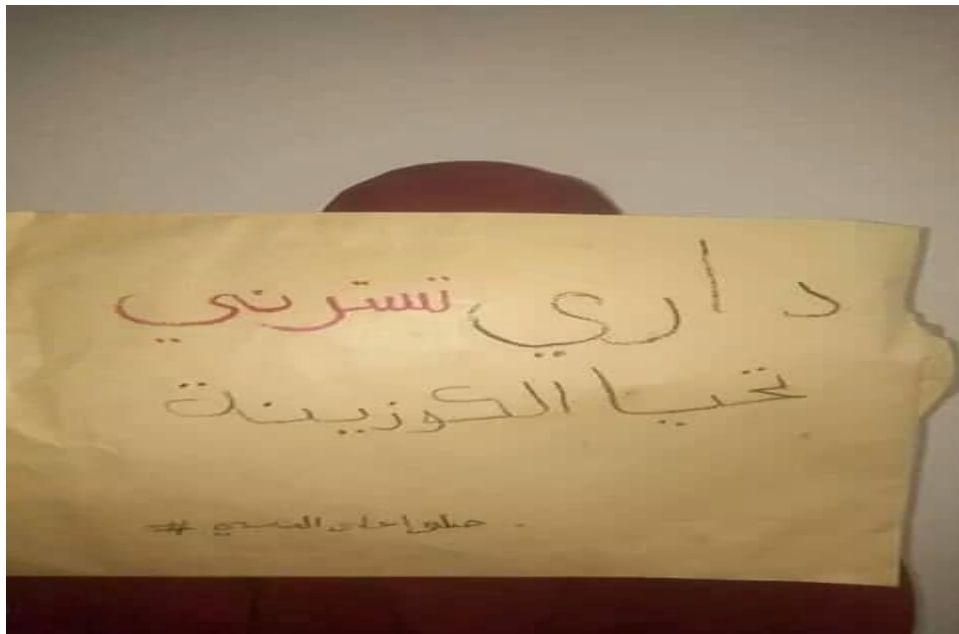 داري تسترني
تحيا الكوزينة
صلوا على النبي #